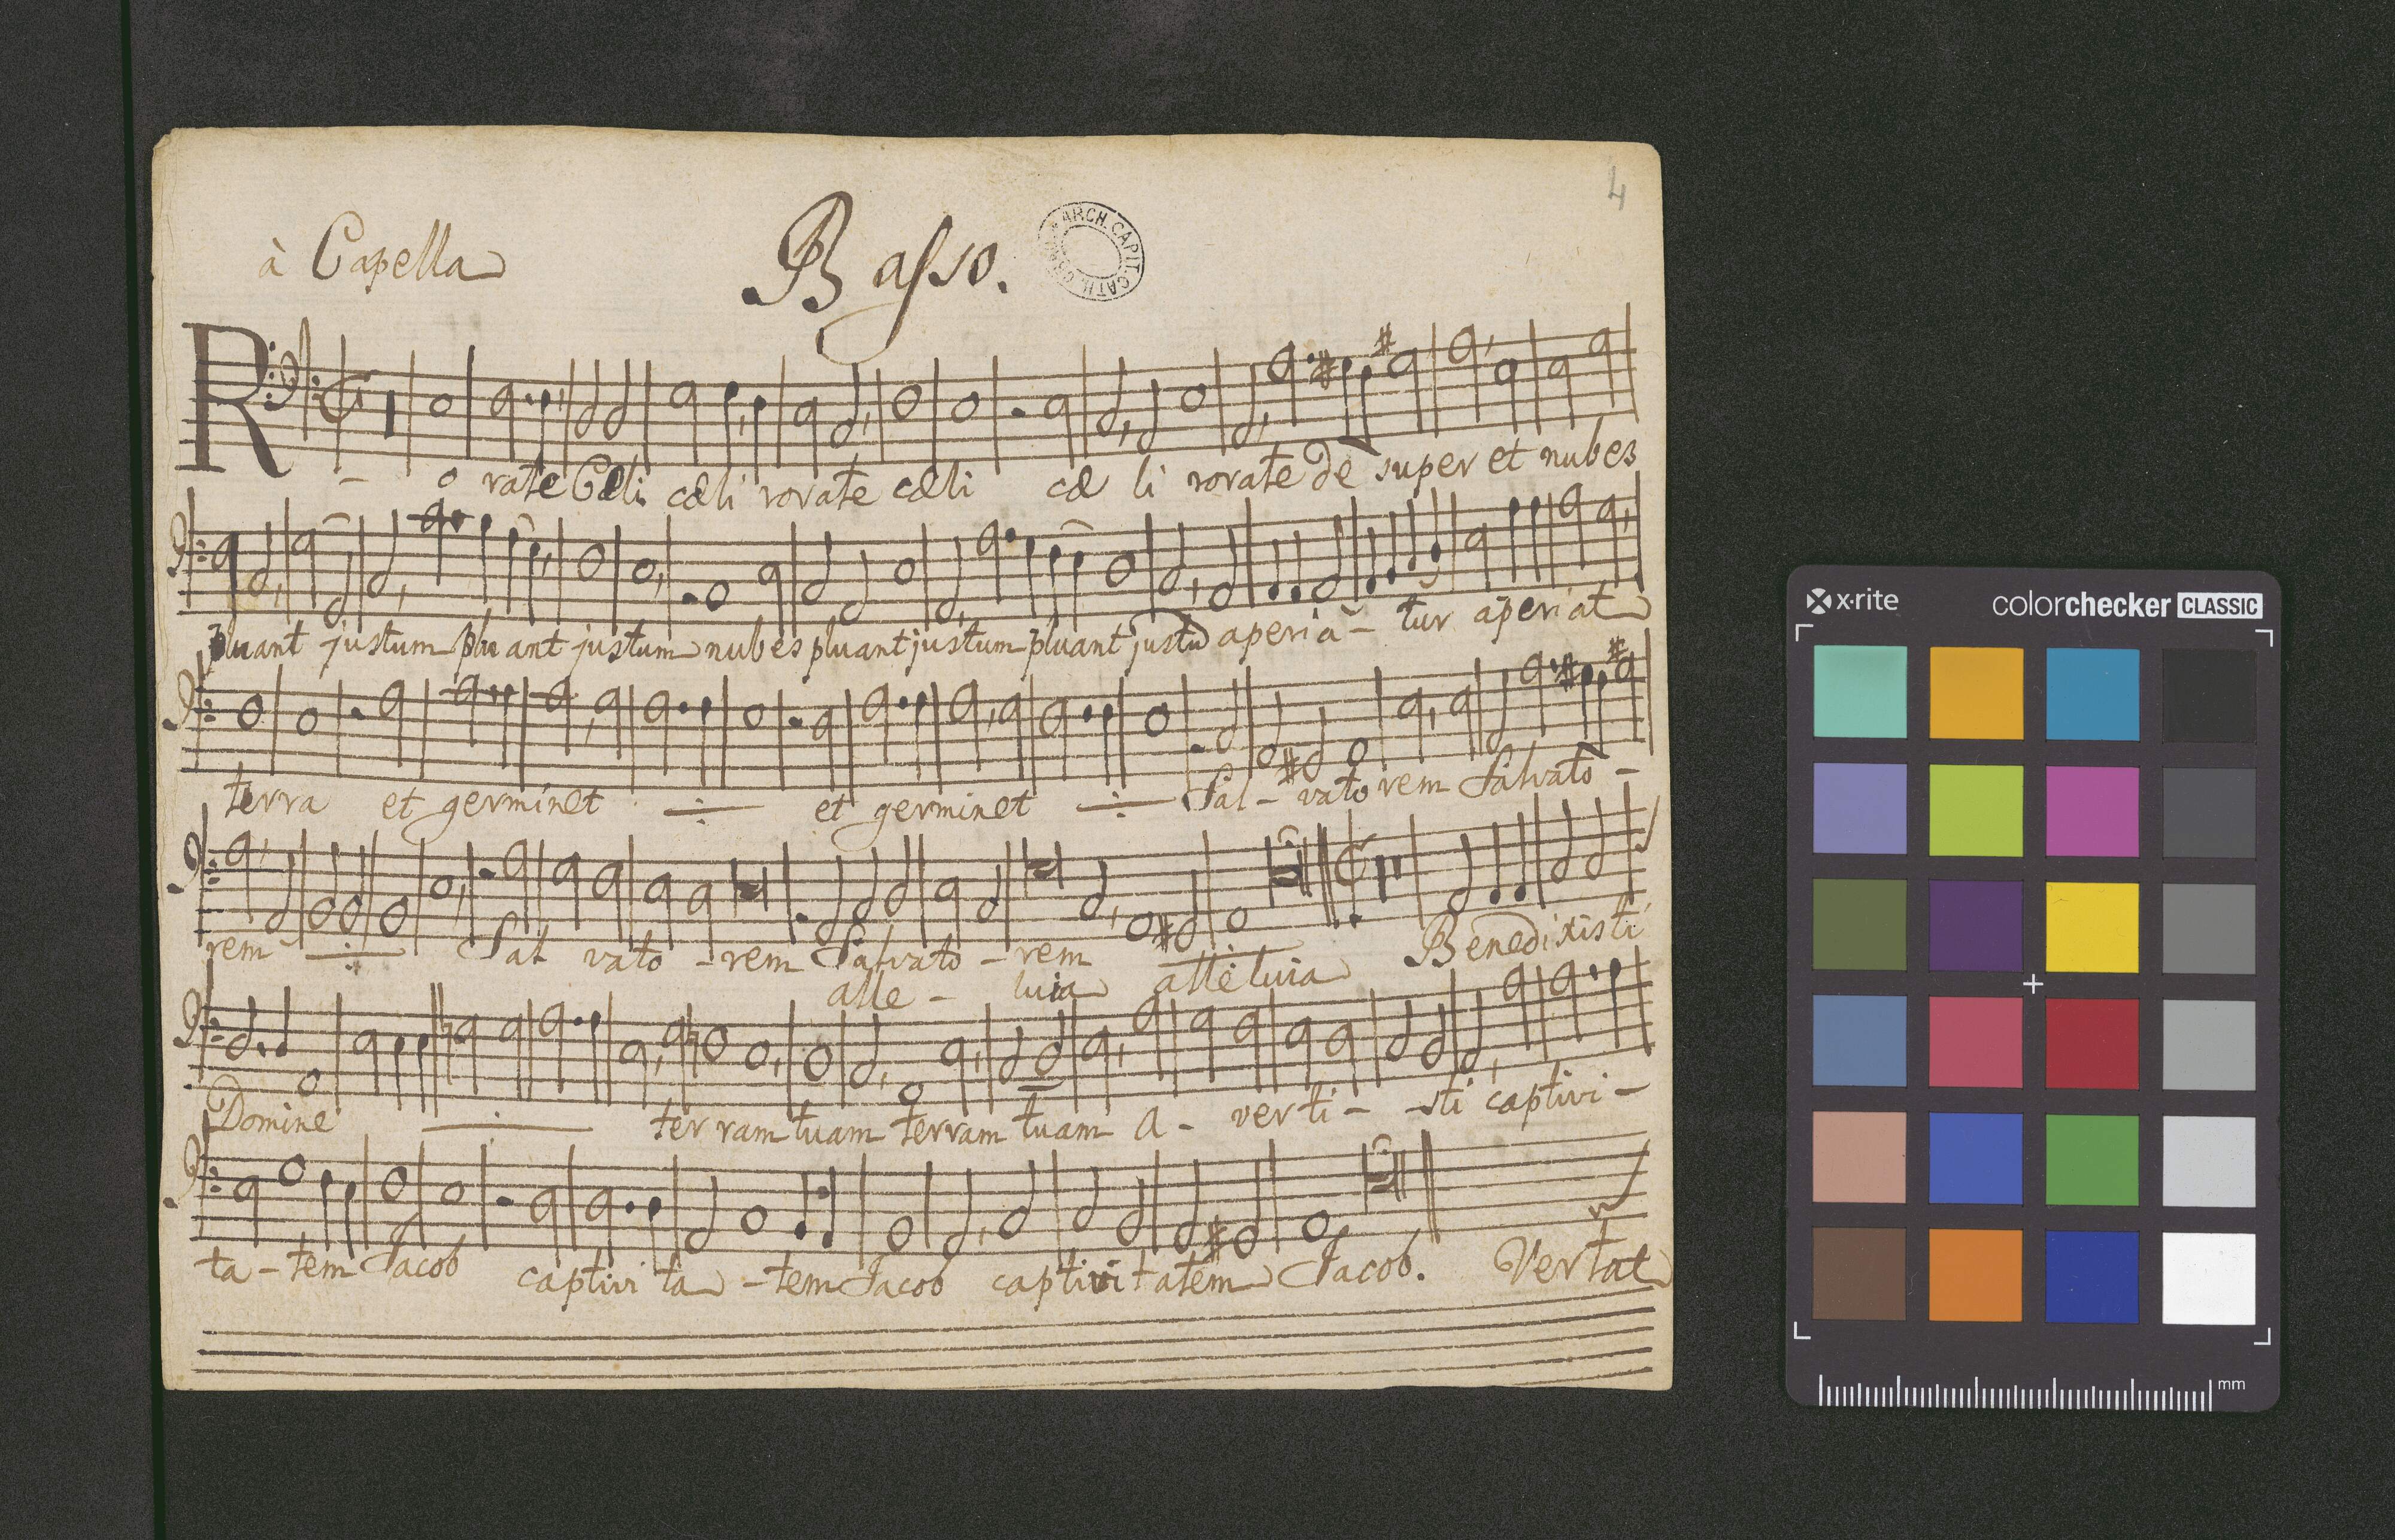 4
à Capella
Basso.
ARCH. CAPIT. CATH.
R - o rate Cæli cæli rorate cæli cæ li rorate de super et nubes
pluant justum pluant justum nubes pluant justum pluant justū aperia - tur aperiat
terra et germinet ÷ et germinet ÷ Sal - vato rem Salvato -
rem ÷ Sal vato - rem Salvato - rem Benedixisti
alle - luia alleluia
Domine ÷ ter ram tuam terram tuam a - verti - sti captivi -
ta - tem Jacob captivi ta - tem Jacob captivitatem Jacob. Vertat
x·rite
colorchecker CLASSIC
mm